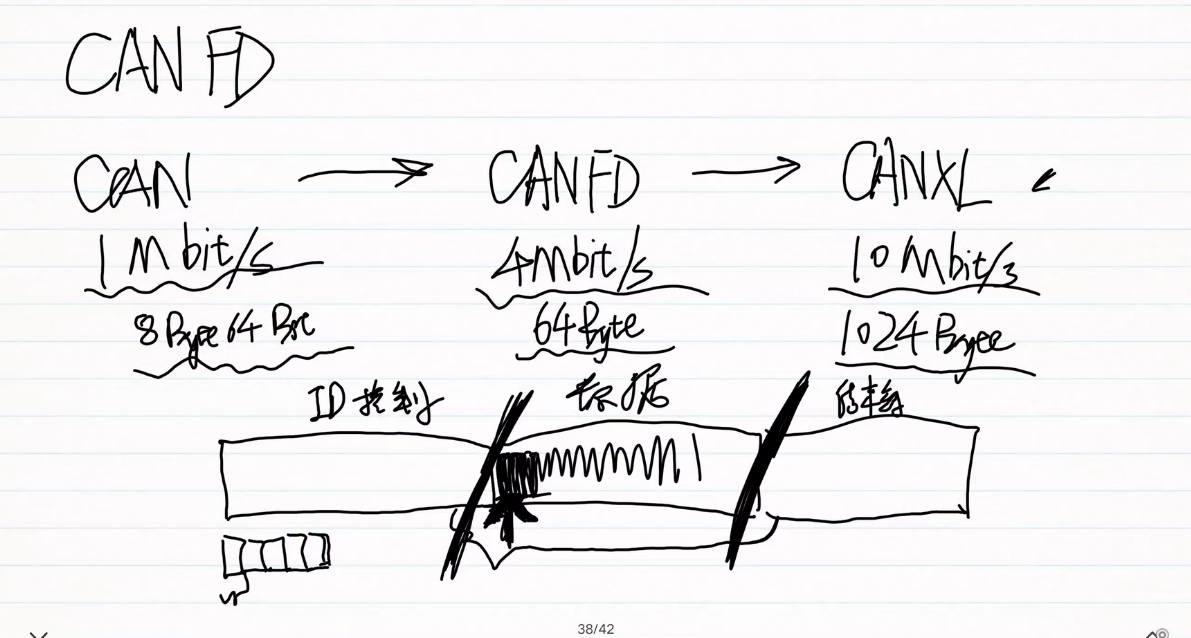 CAN FD
CAN → CANFD → CANXL
1 Mbit/s 4Mbit/s 10Mbit/s
8 Byte 64 Bit 64 Byte 1024 Byte
ID 控制 数据
38/42